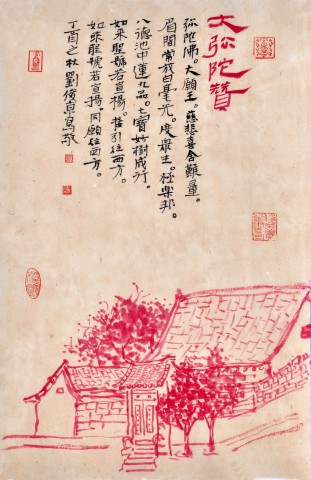 大弥陀赞
弥陀佛。大愿王。慈悲喜舍难量。
眉间常放白毫光。度众生。极乐邦。
八德池中莲九品。七宝妙树成行。
如来圣号若宣扬。接引往西方。
如来圣号若宣扬。同愿往西方。
丁酉之秋刘俊京写敬